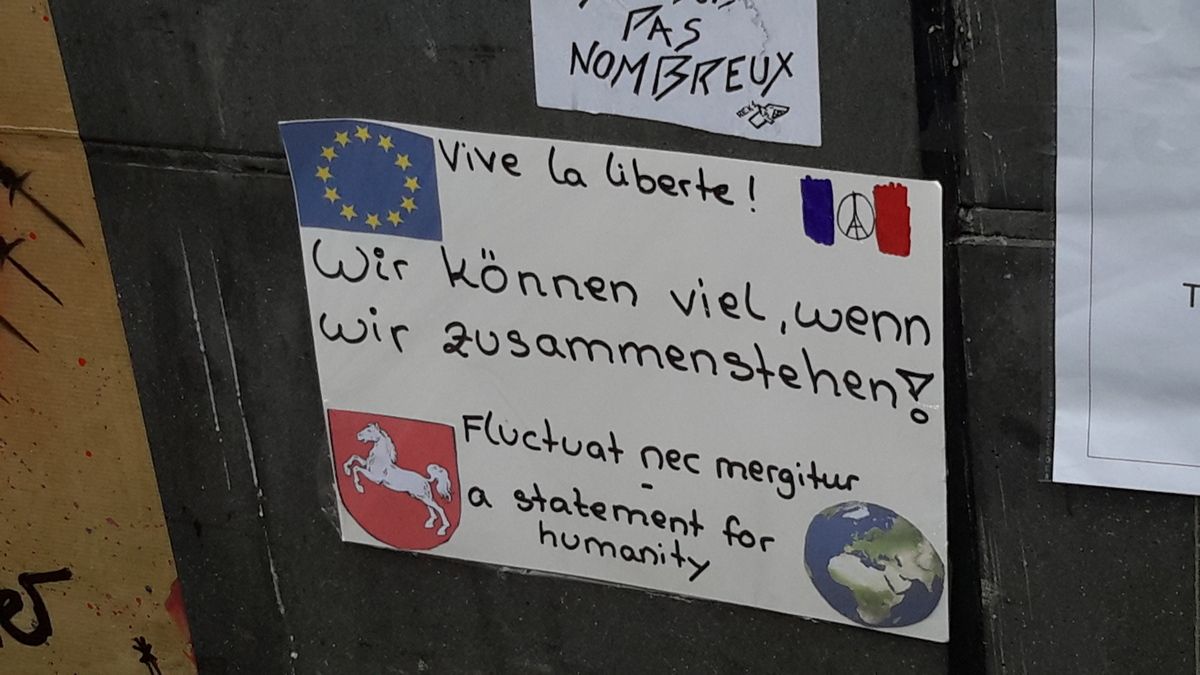 PAS
NOMBREUX
Vive la liberte!
Wir können viel, wenn
wir zusammenstehen!
Fluctuat nec mergitur
-
a statement for
humanity
T